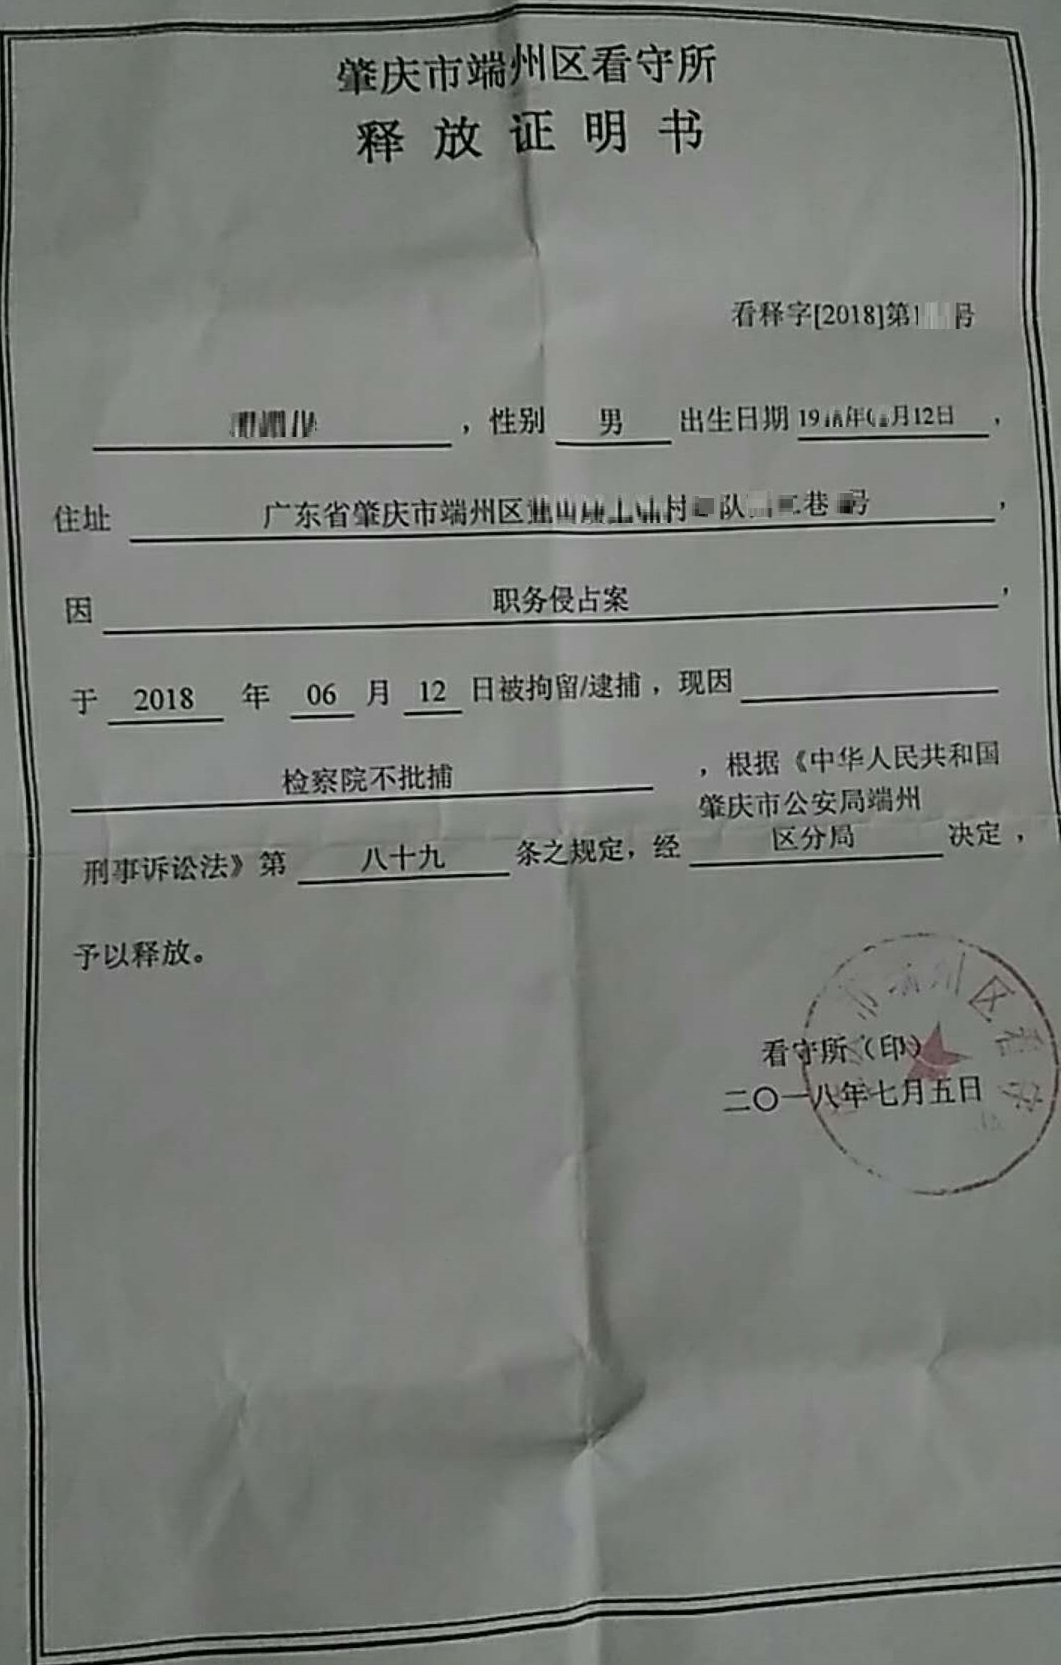 肇庆市端州区看守所
释放证明书
看释字[2018]第1 号
，性别 男 出生日期 19 年 月12日，
住址 广东省肇庆市端州区 村 队 巷 号，
因 职务侵占案，
于 2018 年 06 月 12 日被拘留/逮捕，现因
检察院不批捕，根据《中华人民共和国
肇庆市公安局端州
刑事诉讼法》第 八十九 条之规定，经 区分局 决定，
予以释放。
看守所（印）
二〇一八年七月五日
市端州区看守